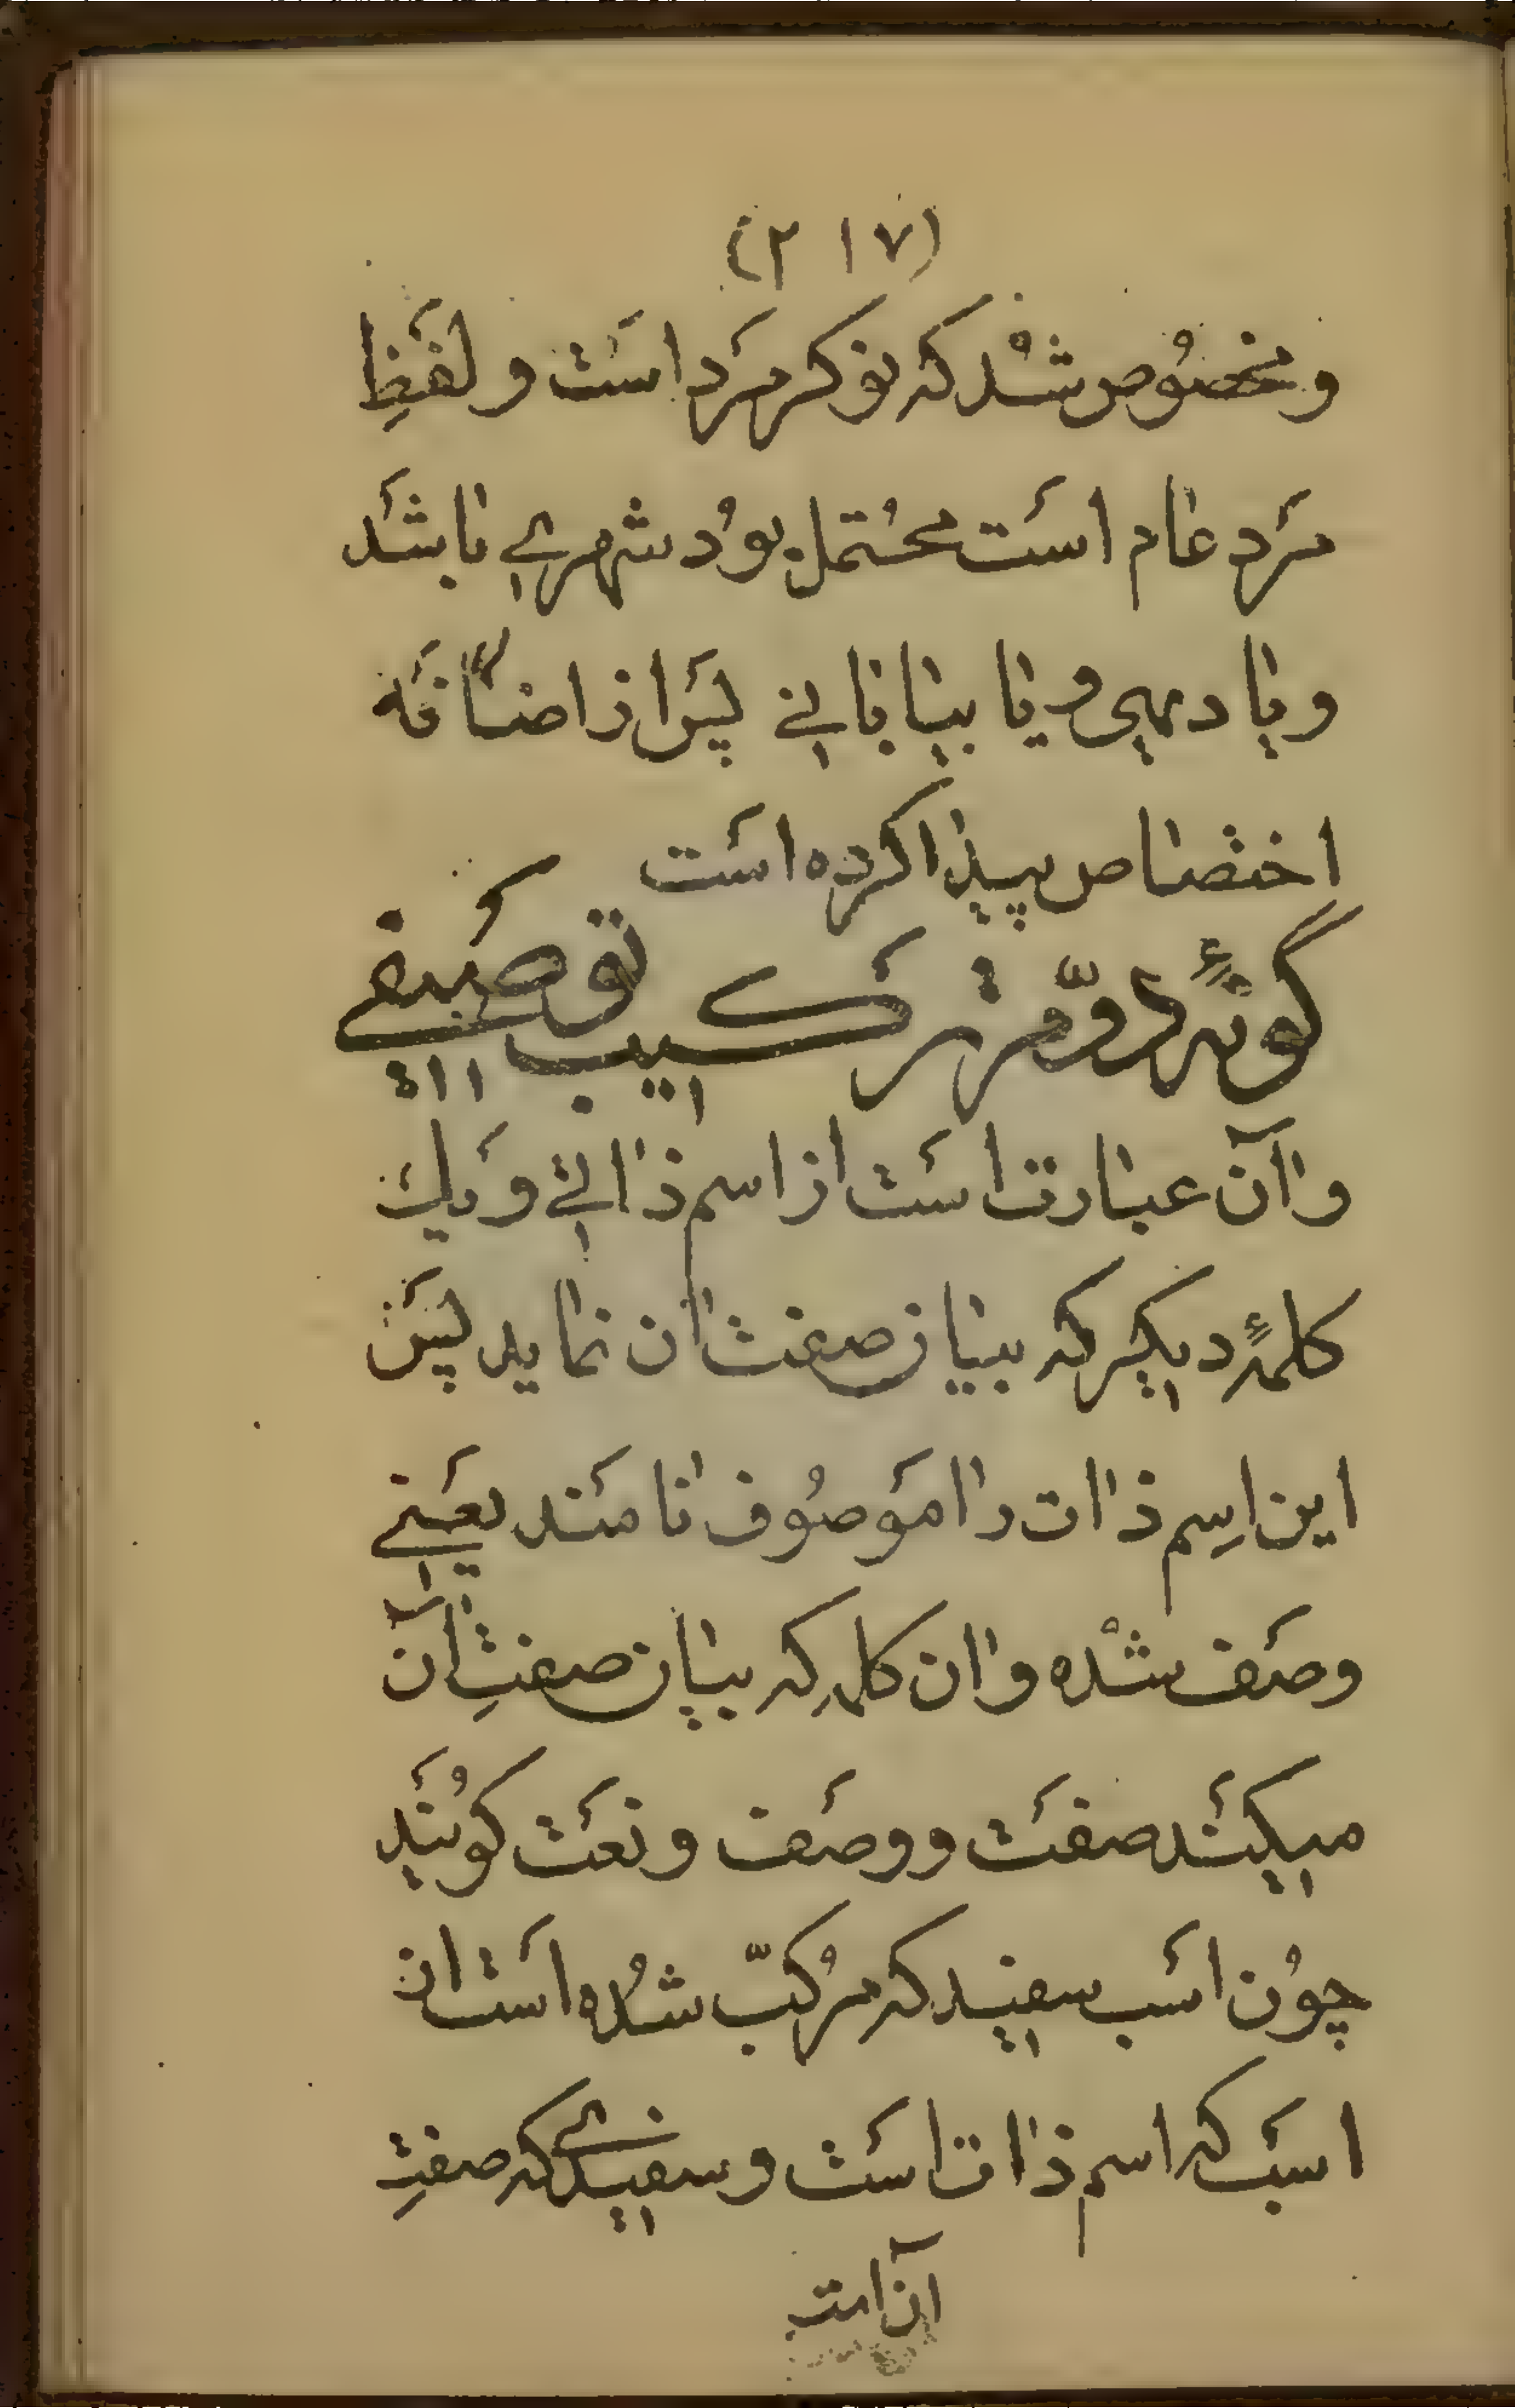 (۲۱۷)
ومخصُوص شُدْ کِه نوکرِ مَرد اسَت و لفَظِ
مَرد عام است محُتمل بوُد شهرے باشَد
ویا دهی و یا بیابانے پَس از اضافَه
اختصاص پیدا کرده است
گونهٔ دوّم ترَکیب توَصیفے
وآن عبارت اسَت از اسم ذاتے وَ یك
کلمهٔ دیگر که بیان صفت ان نماید پَس
این اِسم ذات را مَوصُوف نامَند یعَنے
وصَف شُدْه و ان کلمه کِه بیان صفتِ آن
میکنَد صفَت و وصَف و نعَت کویُنَد
چوُن اسَب سفید که مرُکبّ شُده است از
اسَب که اسم ذات اسَت و سفیدے که صفتِ
آن است